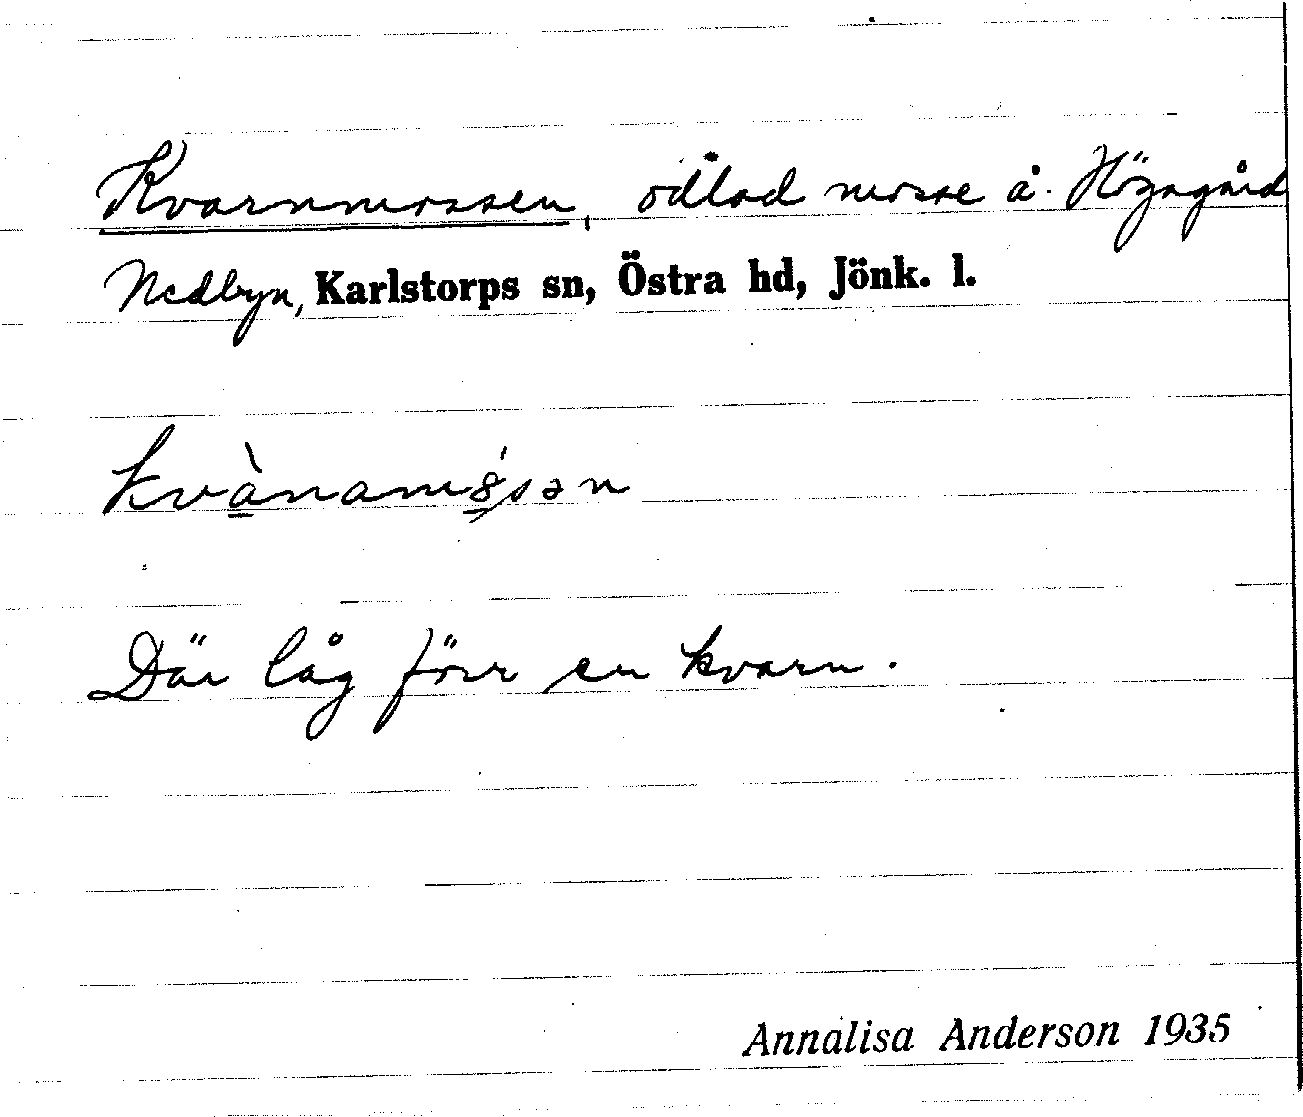 Kvarnmossen, odlad mosse å Högagärd
Nedbyn, Karlstorps sn, Östra hd, Jönk. l.
Där låg förr en kvarn.
Annalisa Anderson 1935